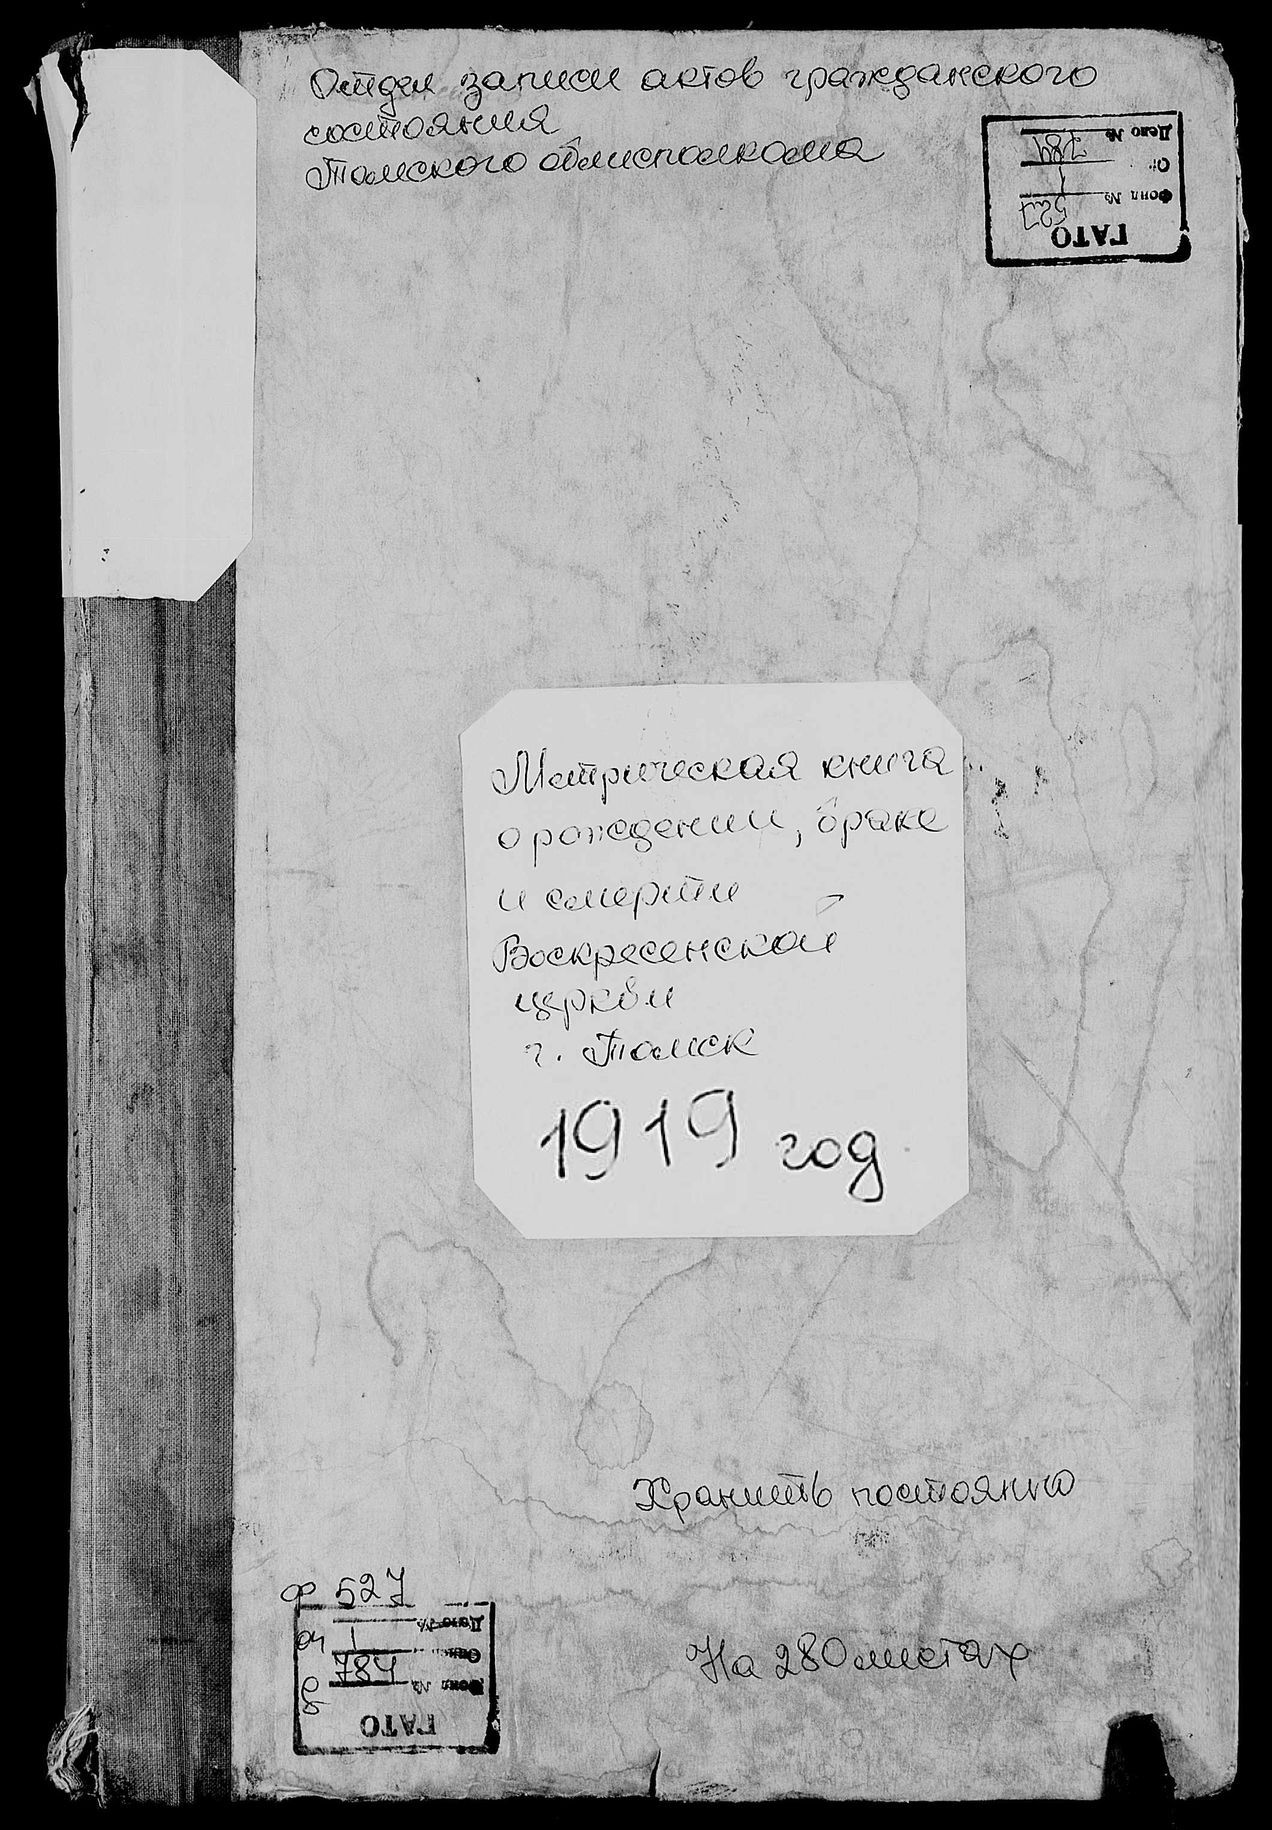 Отдел записи актов гражданского
состояния
Томского облисполкома
ГАТО
Фонд № 527
Оп. 1
Дело № 784
Метрическая книга
о рождении, браке
и смерти
Воскресенской
церкви
г. Томск
1919 год
Хранить постоянно
На 280 листах
ф 527
оп 1
д 784
Дело №
Опись
Фонд №
ГАТО